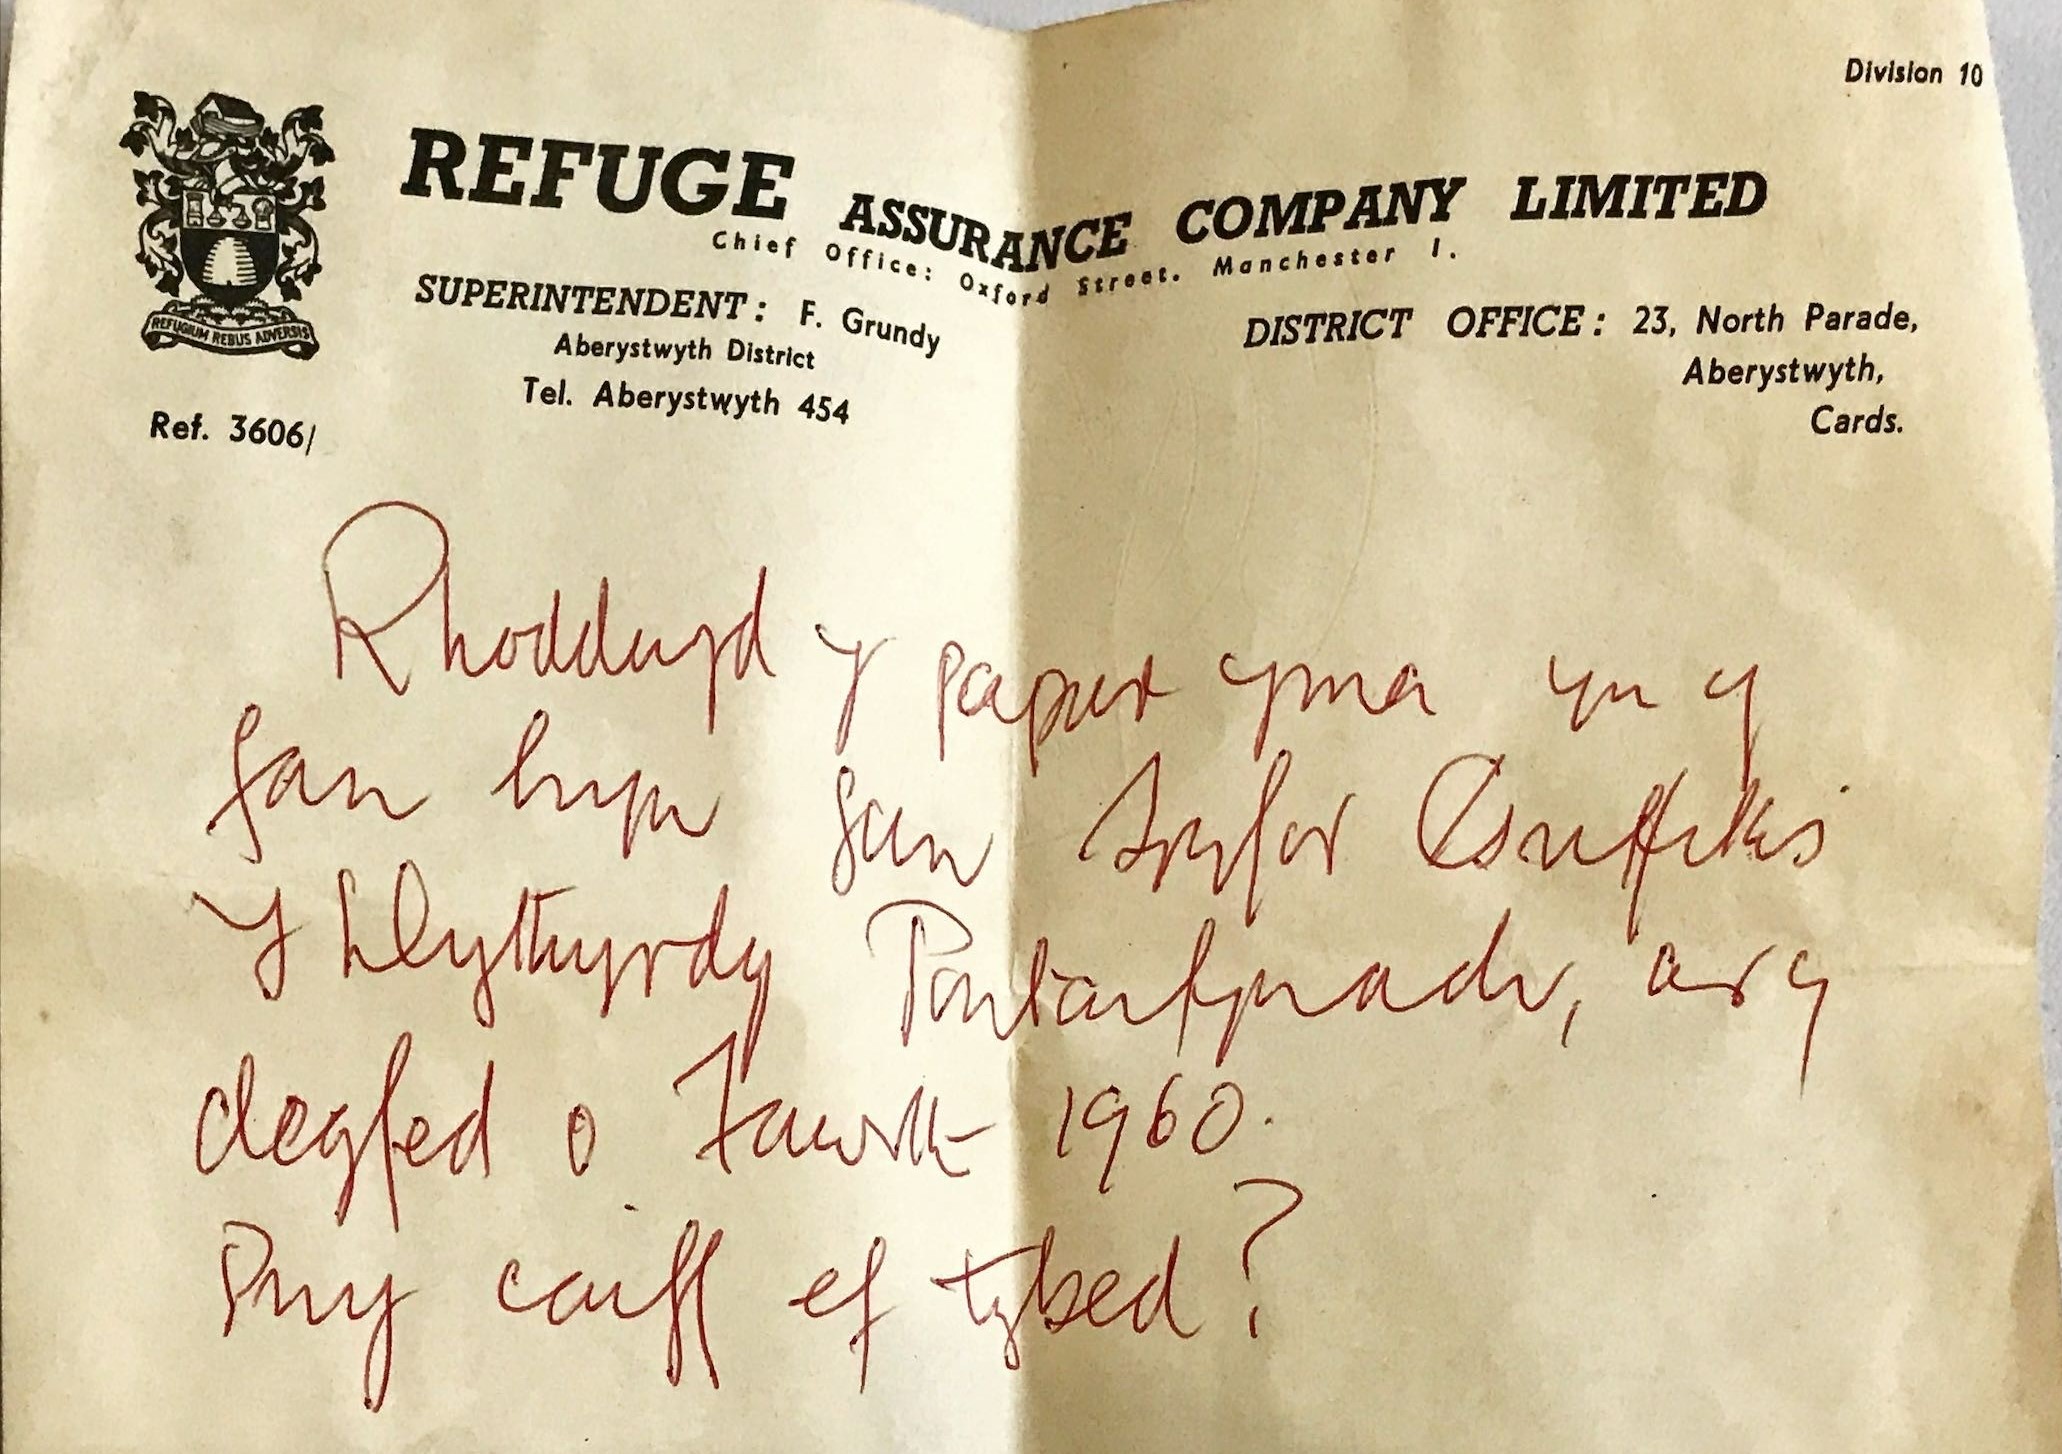 Division 10
REFUGE ASSURANCE COMPANY LIMITED
Chief Office: Oxford Street. Manchester 1.
SUPERINTENDENT: F. Grundy
Aberystwyth District
Tel. Aberystwyth 454
DISTRICT OFFICE: 23, North Parade,
Aberystwyth,
Cards.
REFUGIUM REBUS ADVERSIS
Ref. 3606/
Rhodduyd y papur yma yn y
fan hyn gan Griffiths
Y Llythyrdy Pontarfynach, ar y
degfed o Fawrth 1960.
Pwy caiff ef tybed?